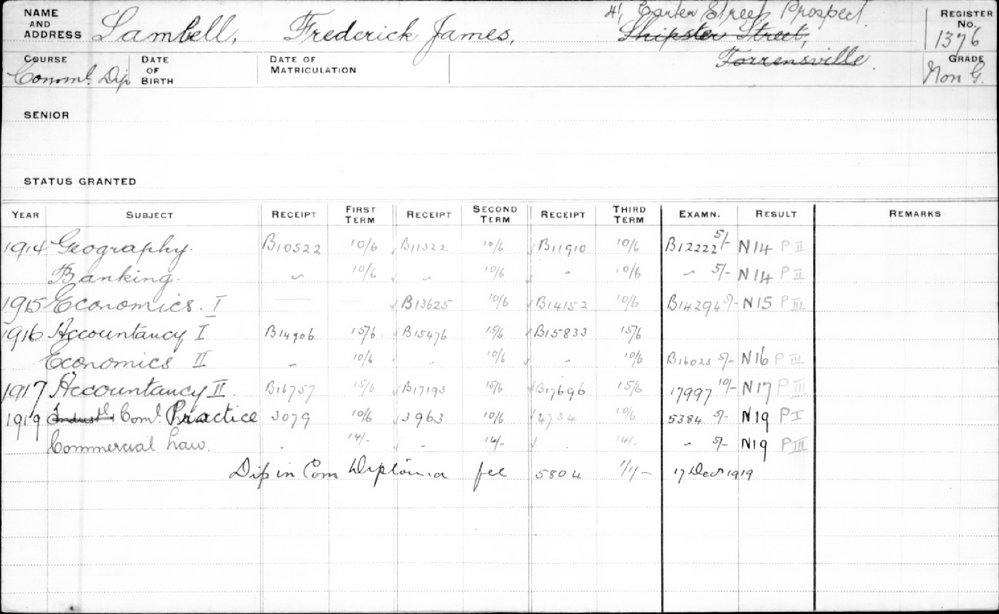 NAME AND ADDRESS Lambell, Frederick James, 41, Carter Street, Prospect.
Shipster Street,
Torrensville.
REGISTER No. 1376
COURSE Comml. Dip DATE OF BIRTH DATE OF MATRICULATION GRADE Non G.
SENIOR
STATUS GRANTED
YEAR SUBJECT RECEIPT FIRST TERM RECEIPT SECOND TERM RECEIPT THIRD TERM EXAMN. RESULT REMARKS
1914 Geography. B10522 10/6 B11322 10/6 B11910 10/6 B12222 5/- N14 P II
Banking. " 10/6 " 10/6 " 10/6 " 5/- N14 P II
1915 Economics. I B13625 10/6 B14152 10/6 B14294 5/- N15 P III
1916 Accountancy I B14906 15/6 B15476 15/6 B15833 15/6
Economics II " 10/6 " 10/6 " 10/6 B16025 5/- N16 P III
1917 Accountancy II. B16757 15/6 B17193 15/6 B17696 15/6 17997 10/- N17 P III
1919 Industl. Coml. Practice 3079 10/6 3963 10/6 4734 10/6 5384 5/- N19 P I
Commercial Law. 14/- " 14/- " 14/- " 5/- N19 P III
Dip in Com Diploma fee 5804 1/1/- 17 Decr 1919